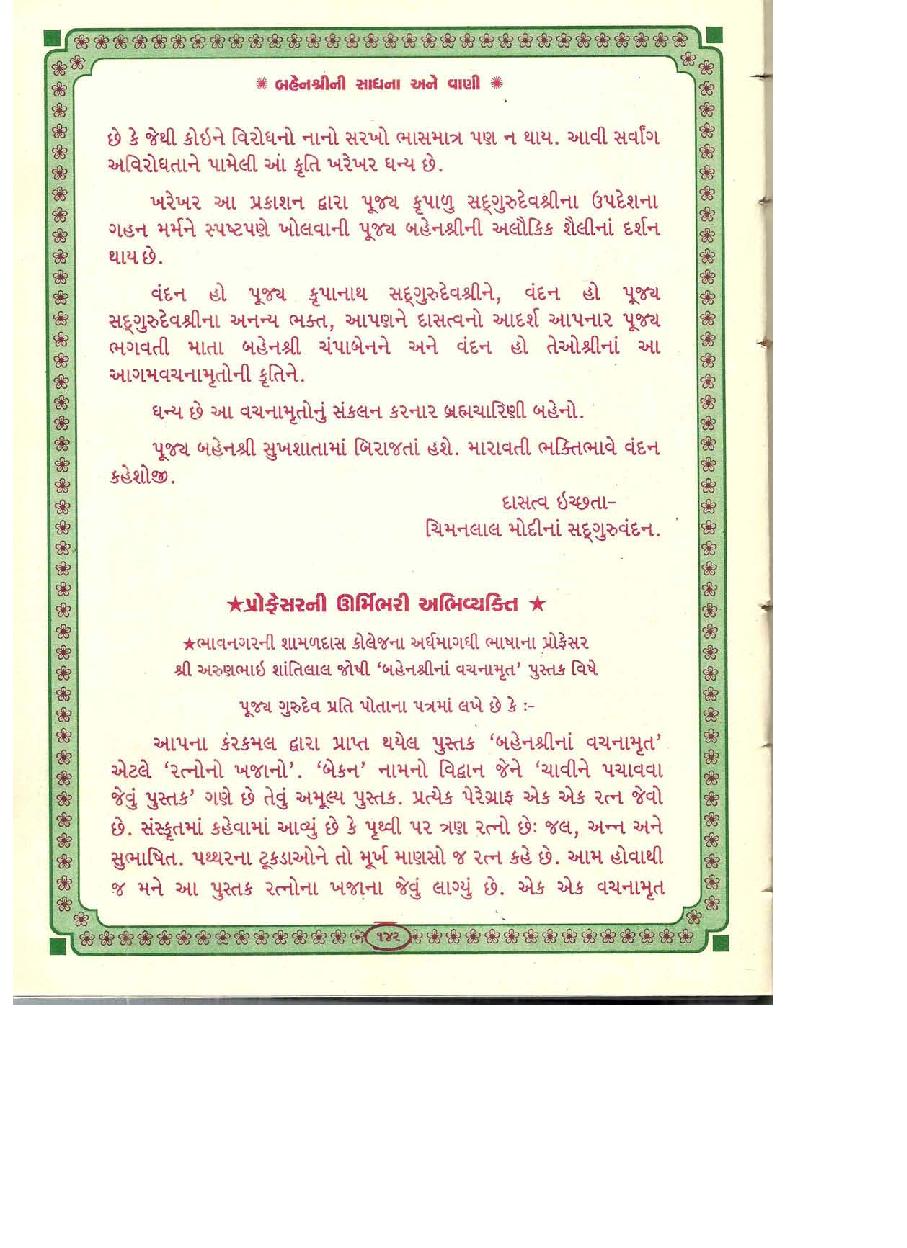 ❋ બહેનશ્રીની સાધના અને વાણી ❋
છે કે જેથી કોઇને વિરોધનો નાનો સરખો ભાસમાત્ર પણ ન થાય. આવી સર્વાંગ
અવિરોધતાને પામેલી આ કૃતિ ખરેખર ધન્ય છે.
ખરેખર આ પ્રકાશન દ્વારા પૂજ્ય કૃપાળુ સદ્‌ગુરુદેવશ્રીના ઉપદેશના
ગહન મર્મને સ્પષ્ટપણે ખોલવાની પૂજ્ય બહેનશ્રીની અલૌકિક શૈલીનાં દર્શન
થાય છે.
વંદન હો પૂજ્ય કૃપાનાથ સદ્‌ગુરુદેવશ્રીને, વંદન હો પૂજ્ય
સદ્‌ગુરુદેવશ્રીના અનન્ય ભક્ત, આપણને દાસત્વનો આદર્શ આપનાર પૂજ્ય
ભગવતી માતા બહેનશ્રી ચંપાબેનને અને વંદન હો તેઓશ્રીનાં આ
આગમવચનામૃતોની કૃતિને.
ધન્ય છે આ વચનામૃતોનું સંકલન કરનાર બ્રહ્મચારિણી બહેનો.
પૂજ્ય બહેનશ્રી સુખશાતામાં બિરાજતાં હશે. મારાવતી ભક્તિભાવે વંદન
કહેશોજી.
દાસત્વ ઇચ્છતા-
ચિમનલાલ મોદીનાં સદ્‌ગુરુવંદન.
★પ્રોફેસરની ઊર્મિભરી અભિવ્યક્તિ ★
★ભાવનગરની શામળદાસ કોલેજના અર્ધમાગધી ભાષાના પ્રોફેસર
શ્રી અરુણભાઇ શાંતિલાલ જોષી ‘બહેનશ્રીનાં વચનામૃત’ પુસ્તક વિષે
પૂજ્ય ગુરુદેવ પ્રતિ પોતાના પત્રમાં લખે છે કે :-
આપના કરકમલ દ્વારા પ્રાપ્ત થયેલ પુસ્તક ‘બહેનશ્રીનાં વચનામૃત’
એટલે ‘રત્નોનો ખજાનો’. ‘બેકન’ નામનો વિદ્વાન જેને ‘ચાવીને પચાવવા
જેવું પુસ્તક’ ગણે છે તેવું અમૂલ્ય પુસ્તક. પ્રત્યેક પેરેગ્રાફ એક એક રત્ન જેવો
છે. સંસ્કૃતમાં કહેવામાં આવ્યું છે કે પૃથ્વી પર ત્રણ રત્નો છેઃ જલ, અન્ન અને
સુભાષિત. પથ્થરના ટૂકડાઓને તો મૂર્ખ માણસો જ રત્ન કહે છે. આમ હોવાથી
જ મને આ પુસ્તક રત્નોના ખજાના જેવું લાગ્યું છે. એક એક વચનામૃત
૧૪૨